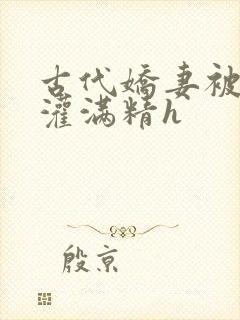 古代嬌妻被
灌满精h
殷京